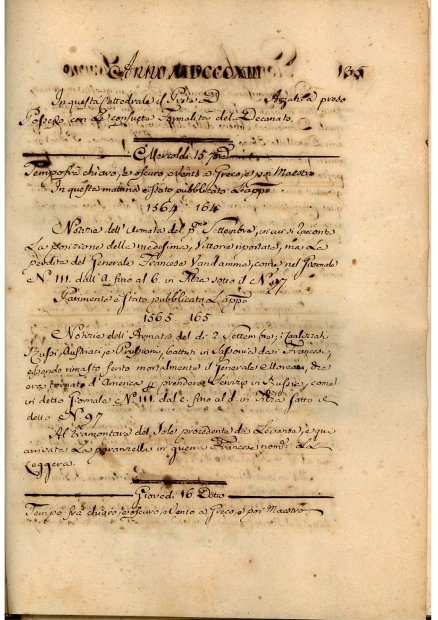 Anno MDCCCXIII 135
In questa Cattedrale il Prete D Azzali à preso
Possesso con le consuete Formalità del Decanato.
Mercoldì 15 Detto
Tempo frà chiaro, e oscuro, e vento a Greco, e por Maestro
In questa mattina è stato pubblicato L'appo
1364 164
Notizie dell'Armata del pmo Settembre, in cui si racconta
La posizione delle medesima, Vittorie riportate, ma La
perdita del Generale Francese Vandamme, come nel Giornale
No 111. dall'a fino al 6 in Filza sotto il No 97
Parimente è stato pubblicata L'appo
1365 165
Notizie dell'Armata del dì 2 Settembre; i Coalizzati
Russi, Austriaci, e Prussiani, battuti in Sassonia dai Francesi,
essendo rimasto ferito mortalmente il Generale Moreau, che
era tornato d'America per prendere Servizio in Russia, come
in detto Giornale No 111. dal c fino al d in Filza sotto il
detto No 97
Al tramontare del Sole procedente da Levante, è qui
arrivata La paranzella in guerra Francese nomta La
Leggera.
Giovedì 16 Detto
Tempo frà chiaro, e oscuro, e Vento a Greco, e por Maestro